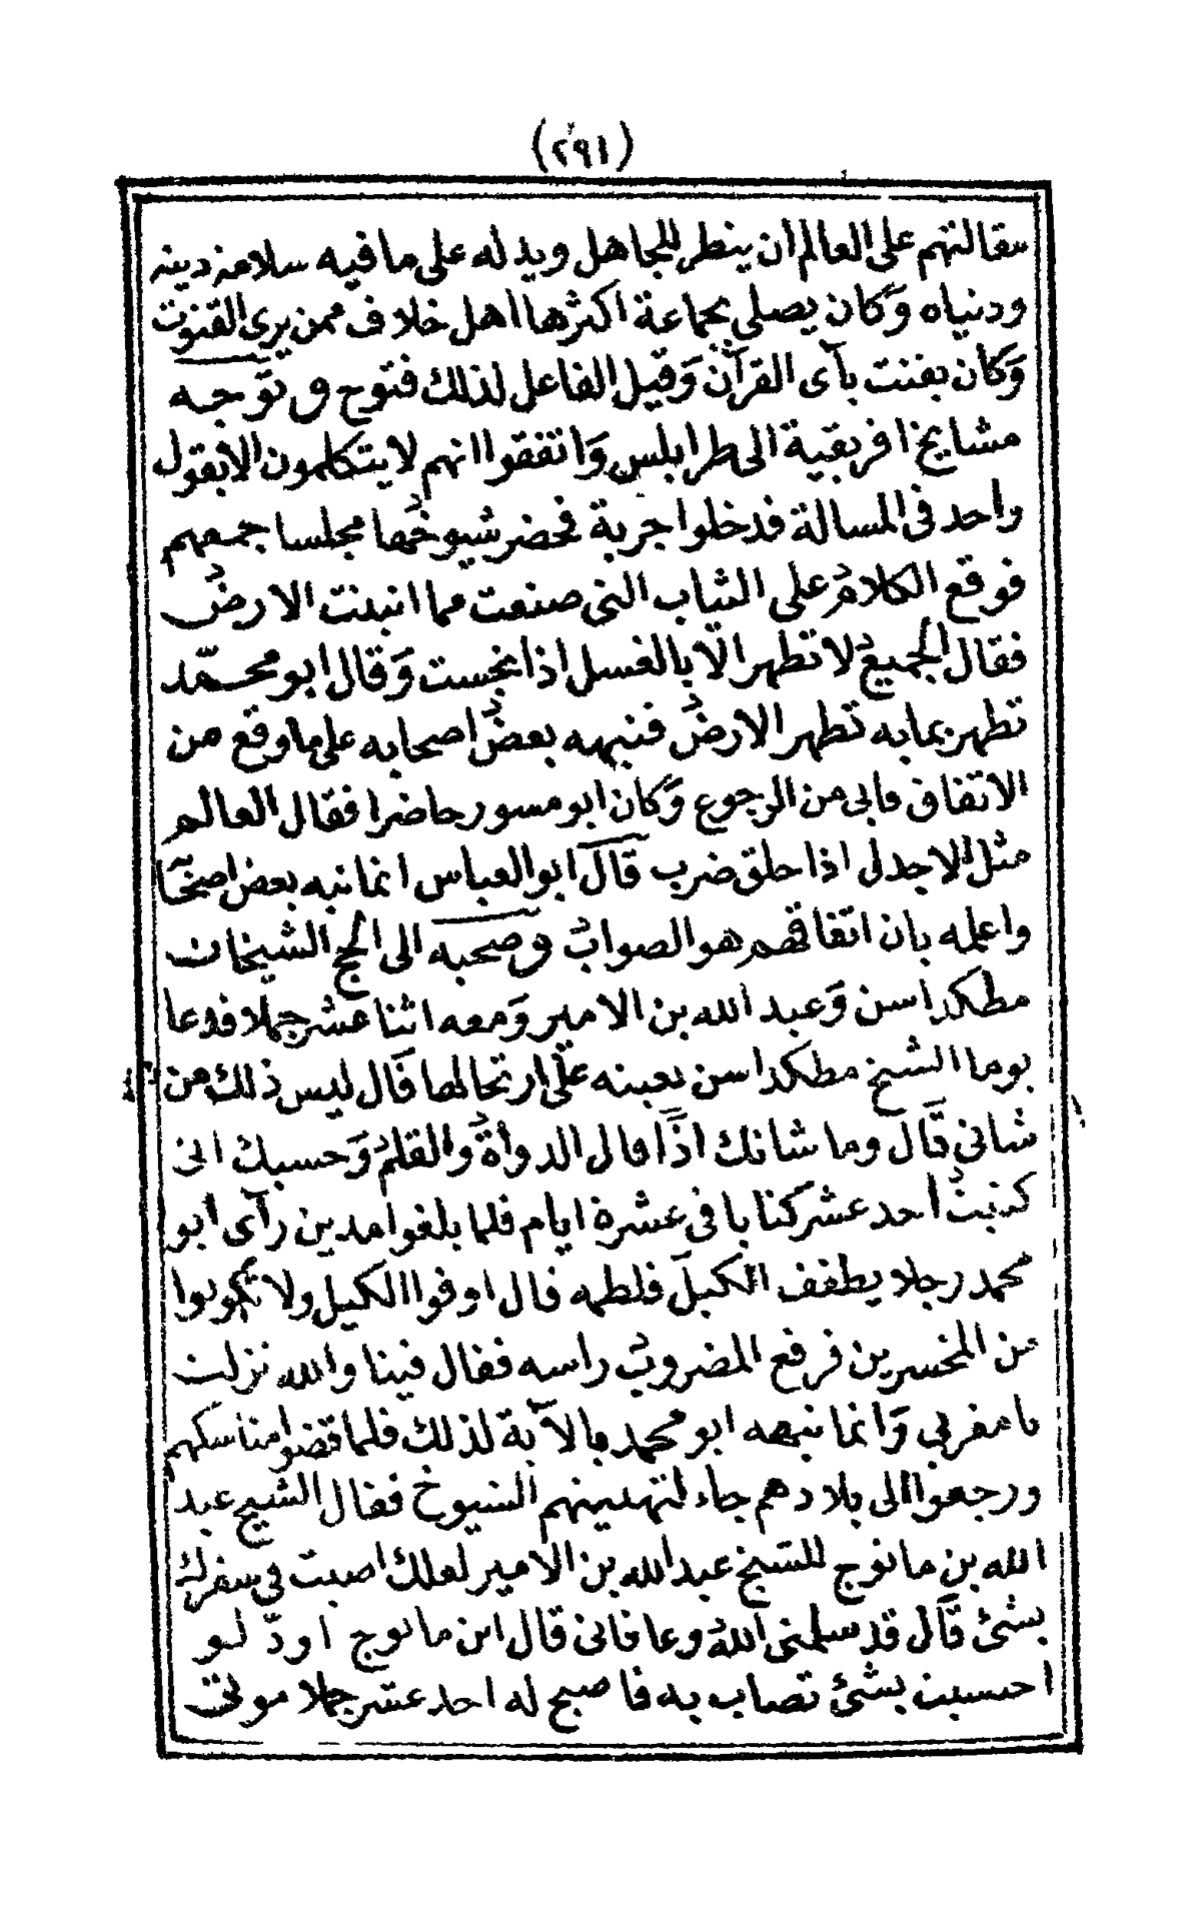 (٢٩١)
مقالتهم على العالم أن ينظر للجاهل ويدله على ما فيه سلامة دينه
ودنياه وَكان يصلي بجماعة اكثرها اهل خلاف ممن يرى القنوت
وَكان يقنت بآى القرآن وَقيل الفاعل لذلك فتوح وتوَّجه
مشايخ افريقية الى طرابلس وَاتفقوا انهم لا يتكلمون الا بقول
واحد فى المسالة فدخلوا جربة فحضر شيوخُها مجلسا جمعهم
فوقع الكلامُ على الثياب التى صنعت مما انبتت الارضُ
فقال الجميعُ لا تطهر الّا بالغسل اذا نجست وَقال ابو محمّد
تطهر بمابه تطهر الارضُ فنبهه بعضُ اصحابه على ما وقع من
الاتفاق فابى من الرجوع وَكان ابو مسور حاضرا فقال العالم
مثل الاجدلى اذا حلق ضرب قال ابو العباس انما نبه بعض اصحابه
واعلمه بان اتفاقهم هو الصوابُ وصحبه الى الحج الشيخان
مطكداسن وَعبد الله بن الامير وَمعه اثنا عشر جملا فدعا
يوما الشيخ مطكداسن يعينه على ارتحالها قَال ليس ذلك من
شانى قَال وما شانك اذًا قال الدواةُ والقلمُ وَحسبك انى
كتبتُ احد عشر كتابا فى عشرة ايام فلما بلغوا مدين رآى ابو
محمد رجلا يطفف الكيلَ فلطمه قال اوفوا الكيل ولا تكونوا
من المخسرين فرفع المضروبُ راسه فقال فينا والله نزلت
يا مغربي وَانما نبهه ابو محمد بالآية لذلك فلما قضوا مناسكهم
ورجعوا الى بلادهم جاء لتهنيتهم الشيوخ فقال الشيخ عبد
الله بن مانوج للشيخ عبد الله بن الامير لعلك اصبت في سفرك
بشئ قَال قد سلمنى اللهُ وعافانى قال ابن مانوج اودّ لو
احسست بشئ تصاب به فاصبح له احد عشر جملا موتى